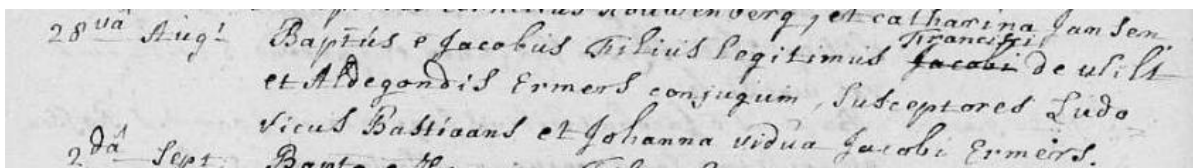 Cornelius Kouwenberg, et catharina Jansen
28vâ Augt Baptûs e Jacobus Filius legitimus Francisci Jacobi de vlilt
et Aldegondis Ermers conjugum, Susceptores Ludo
vicus Bastiaans et Johanna vidua Jacobi Ermers.
2dâ Sept. Bapts e